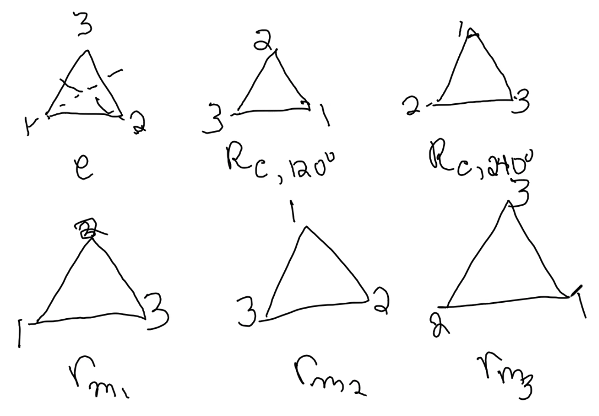 3
1 2
e
2
3 1
R_{C,120°}
1
2 3
R_{C,240°}
2
1 3
r_{m_1}
1
3 2
r_{m_2}
3
2 1
r_{m_3}